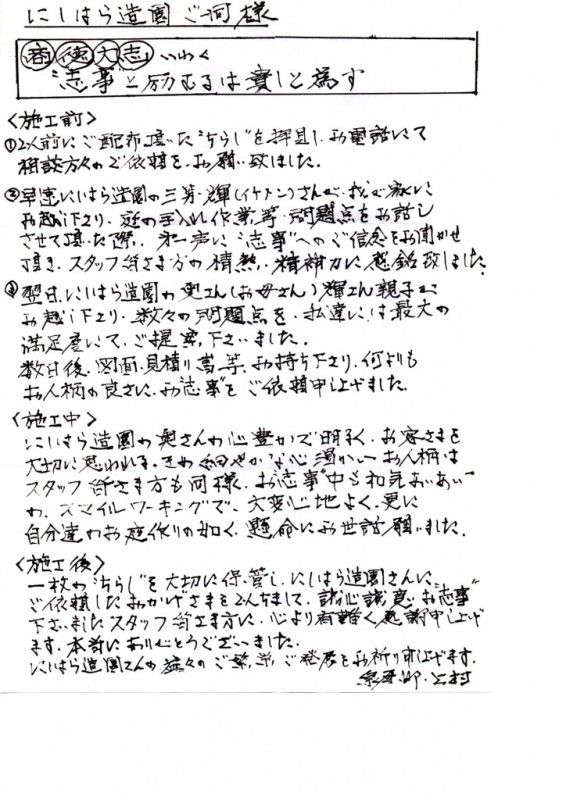 にしはら造園ご一同様
商徳大志 いわく
"志事"と励むるは實しと為す
<施工前>
①2ヶ月前にご配布頂いた"ちらし"を拝見し、お電話にて
相談方々のご依頼を、お願い致しました。
②早速にしはら造園の三男・輝(イケメン)さんが、我が家に
お越し下さり、庭の手入れ作業等・問題点をお話し
させて頂いた際、第一声に"志事"へのご信念をお聞かせ
頂き、スタッフ皆さま方の情熱、精神力に感銘致しました。
③翌日、にしはら造園の奥さん(お母さん)輝さん親子が
お越し下さり、数々の問題点を、私達には最大の
満足度にて、ご提案下さいました。
数日後、図面、見積り書等、お持ち下さり、何よりも
お人柄の良さに、お志事をご依頼申し上げました。
<施工中>
にしはら造園の奥さんの心豊かで明るく、お客さまを
大切に思われる、きめ細やかな心温かいお人柄は
スタッフ皆さま方も同様、お志事中も和気あいあい
の、スマイルワーキングで、大変心地よく、更に
自分達のお庭作りの如く、懸命にお世話願いました。
<施工後>
一枚の"ちらし"を大切に保管し、にしはら造園さんに、
ご依頼したおかげさまを持ちまして、誠心誠意、お"志事"
下さいましたスタッフ皆さま方に、心より有難く感謝申し上げ
ます。本当にありがとうございました。
にしはら造園さんの益々のご繁栄、ご発展をお祈り申し上げます。
上村